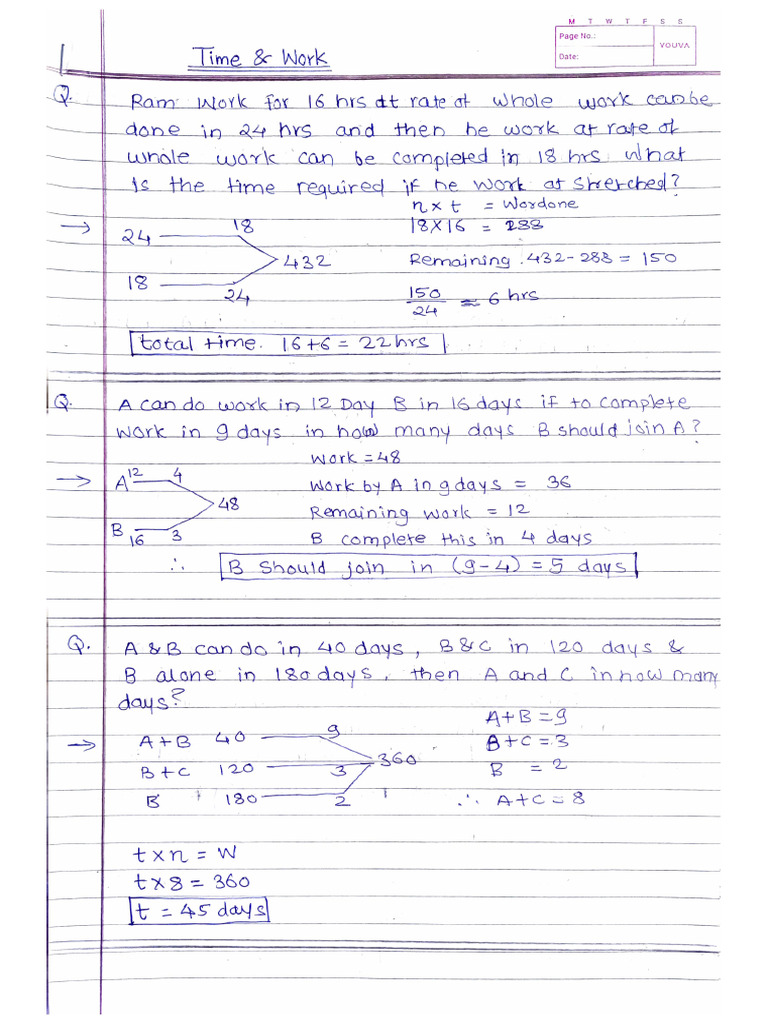 M T W T F S S
Page No.:
Date:
YOUVA
Time & Work
Q. Ram Work for 16 hrs at rate of whole work can be
done in 24 hrs and then he work at rate of
whole work can be completed in 18 hrs what
is the time required if he work at stretched?
n x t = Wordone
→ 24 18 18x16 = 288
432 Remaining . 432-288 = 150
18 24
150/24 ≈ 6 hrs
total time. 16+6 = 22hrs
Q. A can do work in 12 Day B in 16 days if to complete
work in 9 days in how many days B should join A?
Work = 48
→ A 12 4 Work by A in 9 days = 36
48 Remaining work = 12
B 16 3 B complete this in 4 days
∴ B Should join in (9-4) = 5 days
Q. A & B can do in 40 days, B&C in 120 days &
B alone in 180 days, then A and C in how many
days?
A+B = 9
→ A+B 40 9 B+C = 3
B+C 120 3 360 B = 2
B 180 2 ∴ A+C = 8
t x n = W
t x 8 = 360
t = 45 days